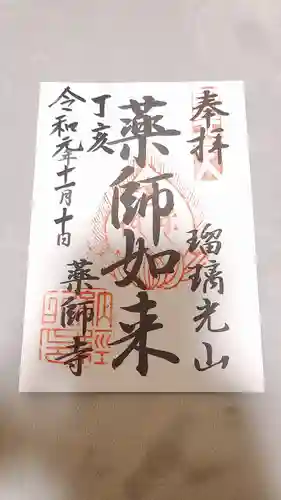 奉拝
瑠璃光山
薬師如来
薬師寺
丁亥
令和元年十一月十日